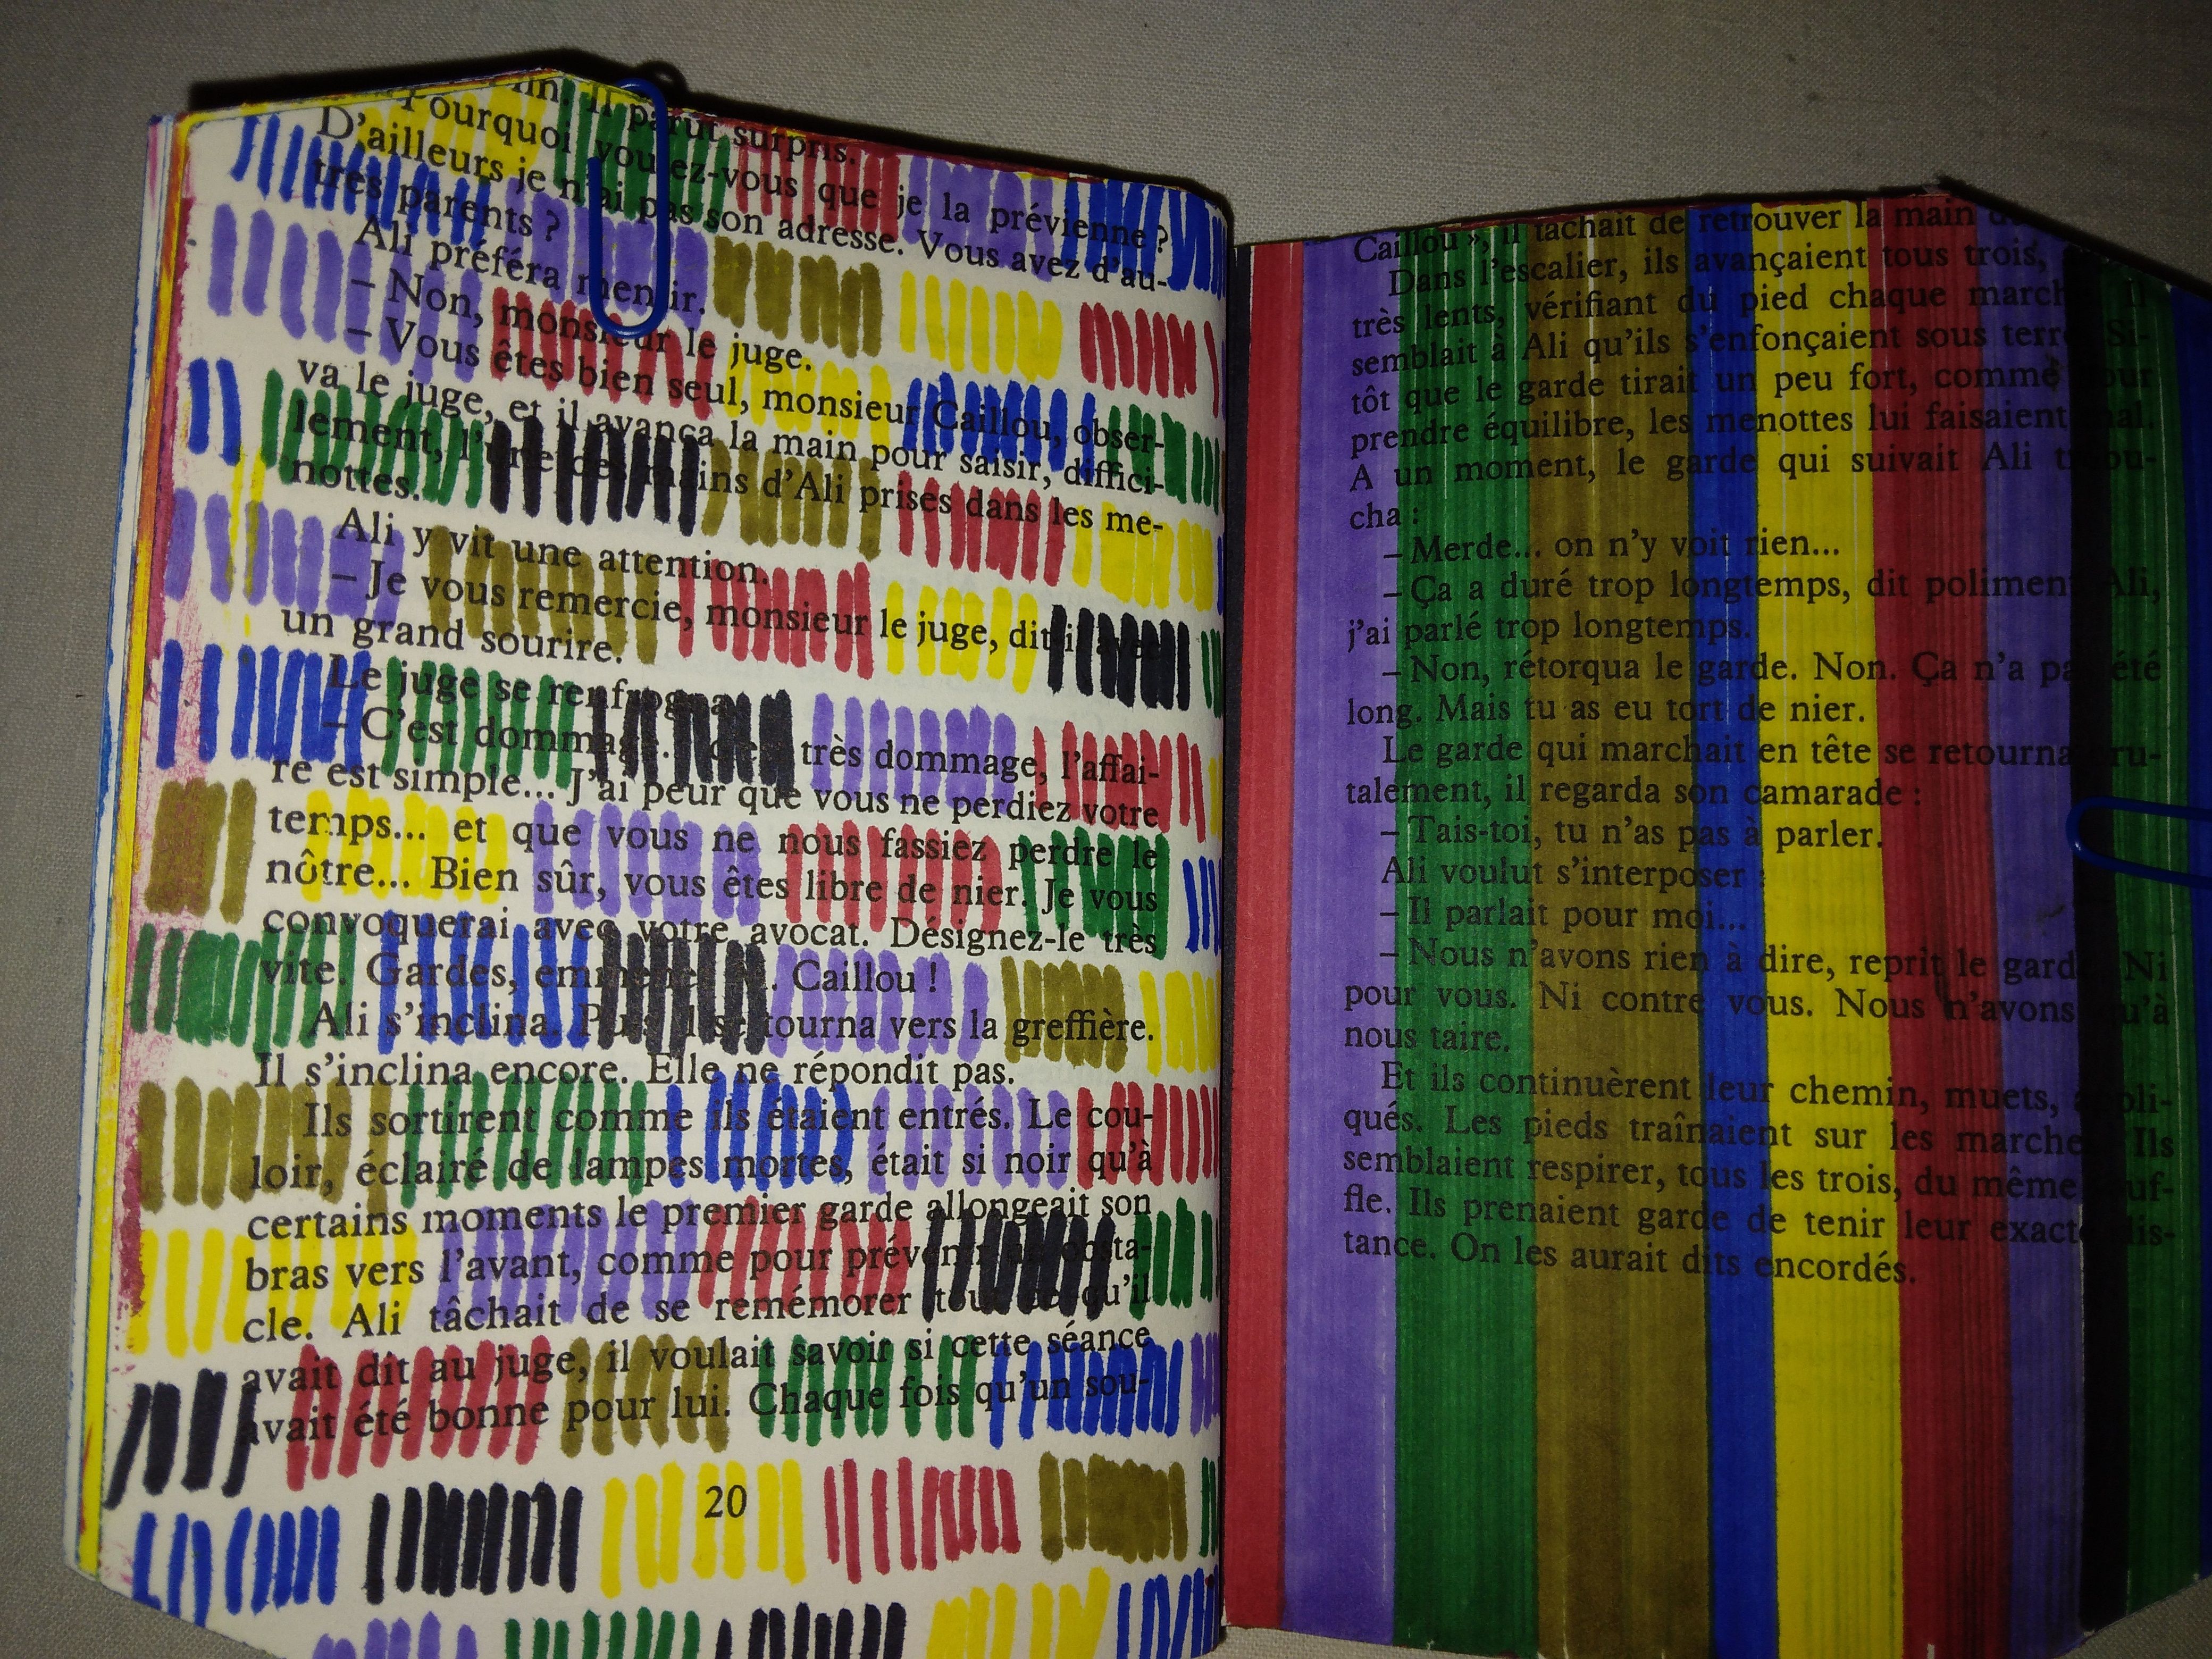 in. Il parut surpris.
Pourquoi voulez-vous que je la prévienne ?
D'ailleurs je n'ai pas son adresse. Vous avez d'au-
tres parents ?
Ali préféra mentir.
– Non, monsieur le juge.
– Vous êtes bien seul, monsieur Caillou, obser-
va le juge, et il avança la main pour saisir, diffici-
lement, l'une des mains d'Ali prises dans les me-
nottes.
Ali y vit une attention.
– Je vous remercie, monsieur le juge, dit-il avec
un grand sourire.
Le juge se renfrogna.
– C'est dommage. très dommage, l'affai-
re est simple... J'ai peur que vous ne perdiez votre
temps... et que vous ne nous fassiez perdre le
nôtre... Bien sûr, vous êtes libre de nier. Je vous
convoquerai avec votre avocat. Désignez-le très
vite. Gardes, emmenez M. Caillou !
Ali s'inclina. Puis il se tourna vers la greffière.
Il s'inclina encore. Elle ne répondit pas.
Ils sortirent comme ils étaient entrés. Le cou-
loir, éclairé de lampes mortes, était si noir qu'à
certains moments le premier garde allongeait son
bras vers l'avant, comme pour prévenir un obsta-
cle. Ali tâchait de se remémorer tout ce qu'il
avait dit au juge, il voulait savoir si cette séance
avait été bonne pour lui. Chaque fois qu'un sou-
20
Caillou », il tâchait de retrouver la main
Dans l'escalier, ils avançaient tous trois,
très lents, vérifiant du pied chaque marche. Il
semblait à Ali qu'ils s'enfonçaient sous terre. Si-
tôt que le garde tirait un peu fort, comme pour
prendre équilibre, les menottes lui faisaient mal.
A un moment, le garde qui suivait Ali trébu-
cha :
– Merde... on n'y voit rien...
– Ça a duré trop longtemps, dit poliment Ali,
j'ai parlé trop longtemps.
– Non, rétorqua le garde. Non. Ça n'a pas été
long. Mais tu as eu tort de nier.
Le garde qui marchait en tête se retourna bru-
talement, il regarda son camarade :
– Tais-toi, tu n'as pas à parler.
Ali voulut s'interposer :
– Il parlait pour moi...
– Nous n'avons rien à dire, reprit le garde. Ni
pour vous. Ni contre vous. Nous n'avons qu'à
nous taire.
Et ils continuèrent leur chemin, muets, appli-
qués. Les pieds traînaient sur les marches. Ils
semblaient respirer, tous les trois, du même souf-
fle. Ils prenaient garde de tenir leur exacte dis-
tance. On les aurait dits encordés.